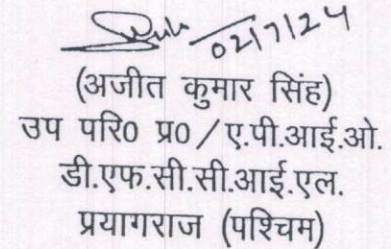 02/7/24
(अजीत कुमार सिंह)
उप परि0 प्र0 / ए.पी.आई.ओ.
डी.एफ.सी.सी.आई.एल.
प्रयागराज (पश्चिम)